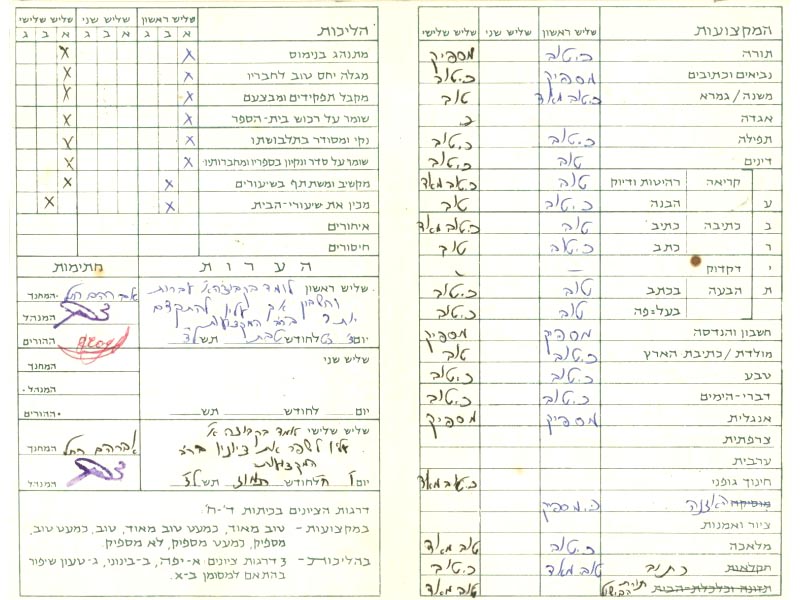 המקצועות שליש ראשון שליש שני שליש שלישי
תורה כ.טוב מספיק
נביאים וכתובים מספיק כ.טוב
משנה/גמרא כ.טוב מאד טוב
אגדה
תפילה כ.טוב כ.טוב
דינים טוב כ.טוב
קריאה רהיטות ודיוק טוב כ.טוב מאד
ע הבנה כ.טוב טוב
ב כתיבה כתיב טוב כ.טוב מאד
ר כתב כ.טוב טוב
י דקדוק —
ת הבעה בכתב טוב כ.טוב
בעל-פה טוב כ.טוב
חשבון והנדסה מספיק מספיק
מולדת/כתיבת הארץ כ.טוב טוב
טבע כ.טוב כ.טוב
דברי-הימים כ.טוב כ.טוב
אנגלית מספיק מספיק
צרפתית
ערבית
חינוך גופני כ.טוב מאד
מוסיקה האזנה כ.מספיק
ציור ואמנות
מלאכה כ.טוב טוב מאד
חקלאות כתוב טוב מאד כ.טוב
תזונה וכלכלת-הבית תורת הבישול טוב מאד
הליכות שליש ראשון שליש שני שליש שלישי
א ב ג א ב ג א ב ג
מתנהג בנימוס x x
מגלה יחס טוב לחבריו x x
מקבל תפקידים ומבצעם x x
שומר על רכוש בית-הספר x x
נקי ומסודר בתלבושתו x x
שומר על סדר ונקיון בספריו ומחברותיו x x
מקשיב ומשתתף בשיעורים x x
מכין את שיעורי-הבית x x
איחורים
חיסורים
הערות חתימות
שליש ראשון לומד בקבוצה א' עברית
וחשבון אך עליו להתקדם
יותר ברוב המקצועות
יום לחודש טבת תש
המחנך
המנהל
ההורים
שליש שני
יום לחודש תש
המחנך
המנהל
ההורים
שליש שלישי למד בקבוצה א'
עליו לשפר את ציוניו ברוב
המקצועות
יום לחודש תמוז תש
המחנך אברהם רחל
המנהל
דרגות הציונים בכיתות ד'-ח'
במקצועות - טוב מאוד, כמעט טוב מאוד, טוב, כמעט טוב,
מספיק, כמעט מספיק, לא מספיק.
בהליכות - 3 דרגות ציונים: א-יפה, ב-בינוני, ג-טעון שיפור
בהתאם למסומן ב-x.